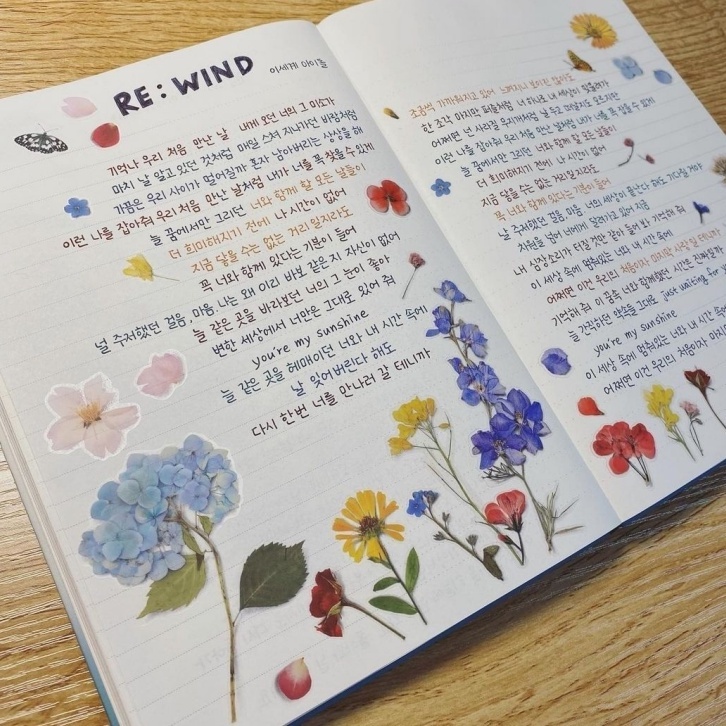 RE : WIND 이세계 아이돌
기억나 우리 처음 만난 날 내게 오던 너의 그 미소가
마치 날 알고 있던 것처럼 매일 스쳐 지나가던 바람처럼
가끔은 우리 사이가 멀어질까 혼자 남아버리는 상상을 해
이런 나를 잡아줘 우리 처음 만난 날처럼 내가 너를 꼭 찾을 수 있게
늘 꿈에서만 그리던 너와 함께 할 모든 날들이
더 희미해지기 전에 난 시간이 없어
지금 닿을 수는 없는 거리일지라도
꼭 너와 함께 있다는 기분이 들어
널 주저했던 걸음, 마음, 나는 왜 이리 바보 같은지 자신이 없어
늘 같은 곳을 바라보던 너의 그 눈이 좋아
변한 세상에서 너만은 그대로 있어 줘
you're my sunshine
늘 같은 곳을 헤매이던 너와 내 시간 속에
날 잊어버린다 해도
다시 한번 너를 만나러 갈 테니까
조금씩 가까워지고 있어 느껴지니 보이진 않아도
한 조각 마지막 퍼즐처럼 너 하나로 내 세상이 뒤집혀가
어쩌면 넌 사라질 무지개처럼 날 두고 떠날지도 모르지만
이런 나를 잡아줘 우리 처음 만난 날처럼 내가 너를 꼭 찾을 수 있게
늘 꿈에서만 그리던 너와 함께 할 모든 날들이
더 희미해지기 전에 난 시간이 없어
지금 닿을 수는 없는 거리일지라도
꼭 너와 함께 있다는 기분이 들어
날 주저했던 걸음, 마음, 너의 세상이 불난다 해도 기다릴 게
차원을 넘어 너에게 달려가고 있어 지금
내 심장소리가 터질 것만 같아 들어 봐 기억해 줘
이 세상 속에 멈춰있는 너와 내 시간 속에
어쩌면 이건 우리의 처음이자 마지막 사랑일 테니까
기억해 줘 이 음악 너와 함께했던 시간은 진짜였
늘 간직하던 약속을 그대로 just waiting for
you're my sunshine
이 세상 속에 멈춰있는 너와 내 시간 속에
어쩌면 이건 우리의 처음이자 마지